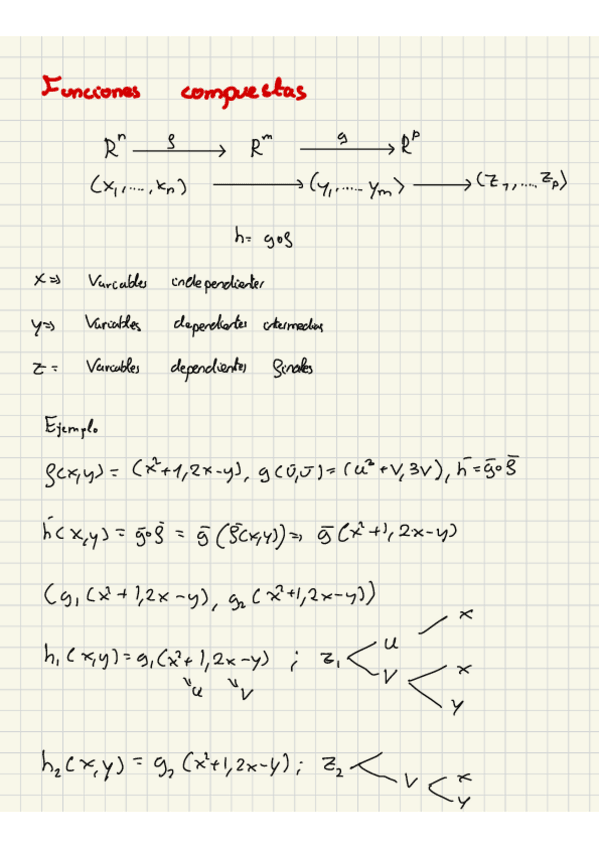 Funciones compuestas
Rⁿ f → Rᵐ g → Rᵖ
(x₁,...., xₙ) → (y₁,..... yₘ) → (z₁,.... zₚ)
h = g∘f
x => Variables independientes
y => Variables dependientes intermedias
z = Variables dependientes finales
Ejemplo
f(x,y) = (x²+1, 2x-y), g(ū,v̄) = (u²+v, 3v), h̄ = ḡ∘f̄
h̄(x,y) = ḡ∘f̄ = ḡ(f̄(x,y)) => ḡ(x²+1, 2x-y)
(g₁(x²+1, 2x-y), g₂(x²+1, 2x-y))
h₁(x,y) = g₁(x²+1, 2x-y) ; z₁ u x
u v v x y
h₂(x,y) = g₂(x²+1, 2x-y) ; z₂ v x y